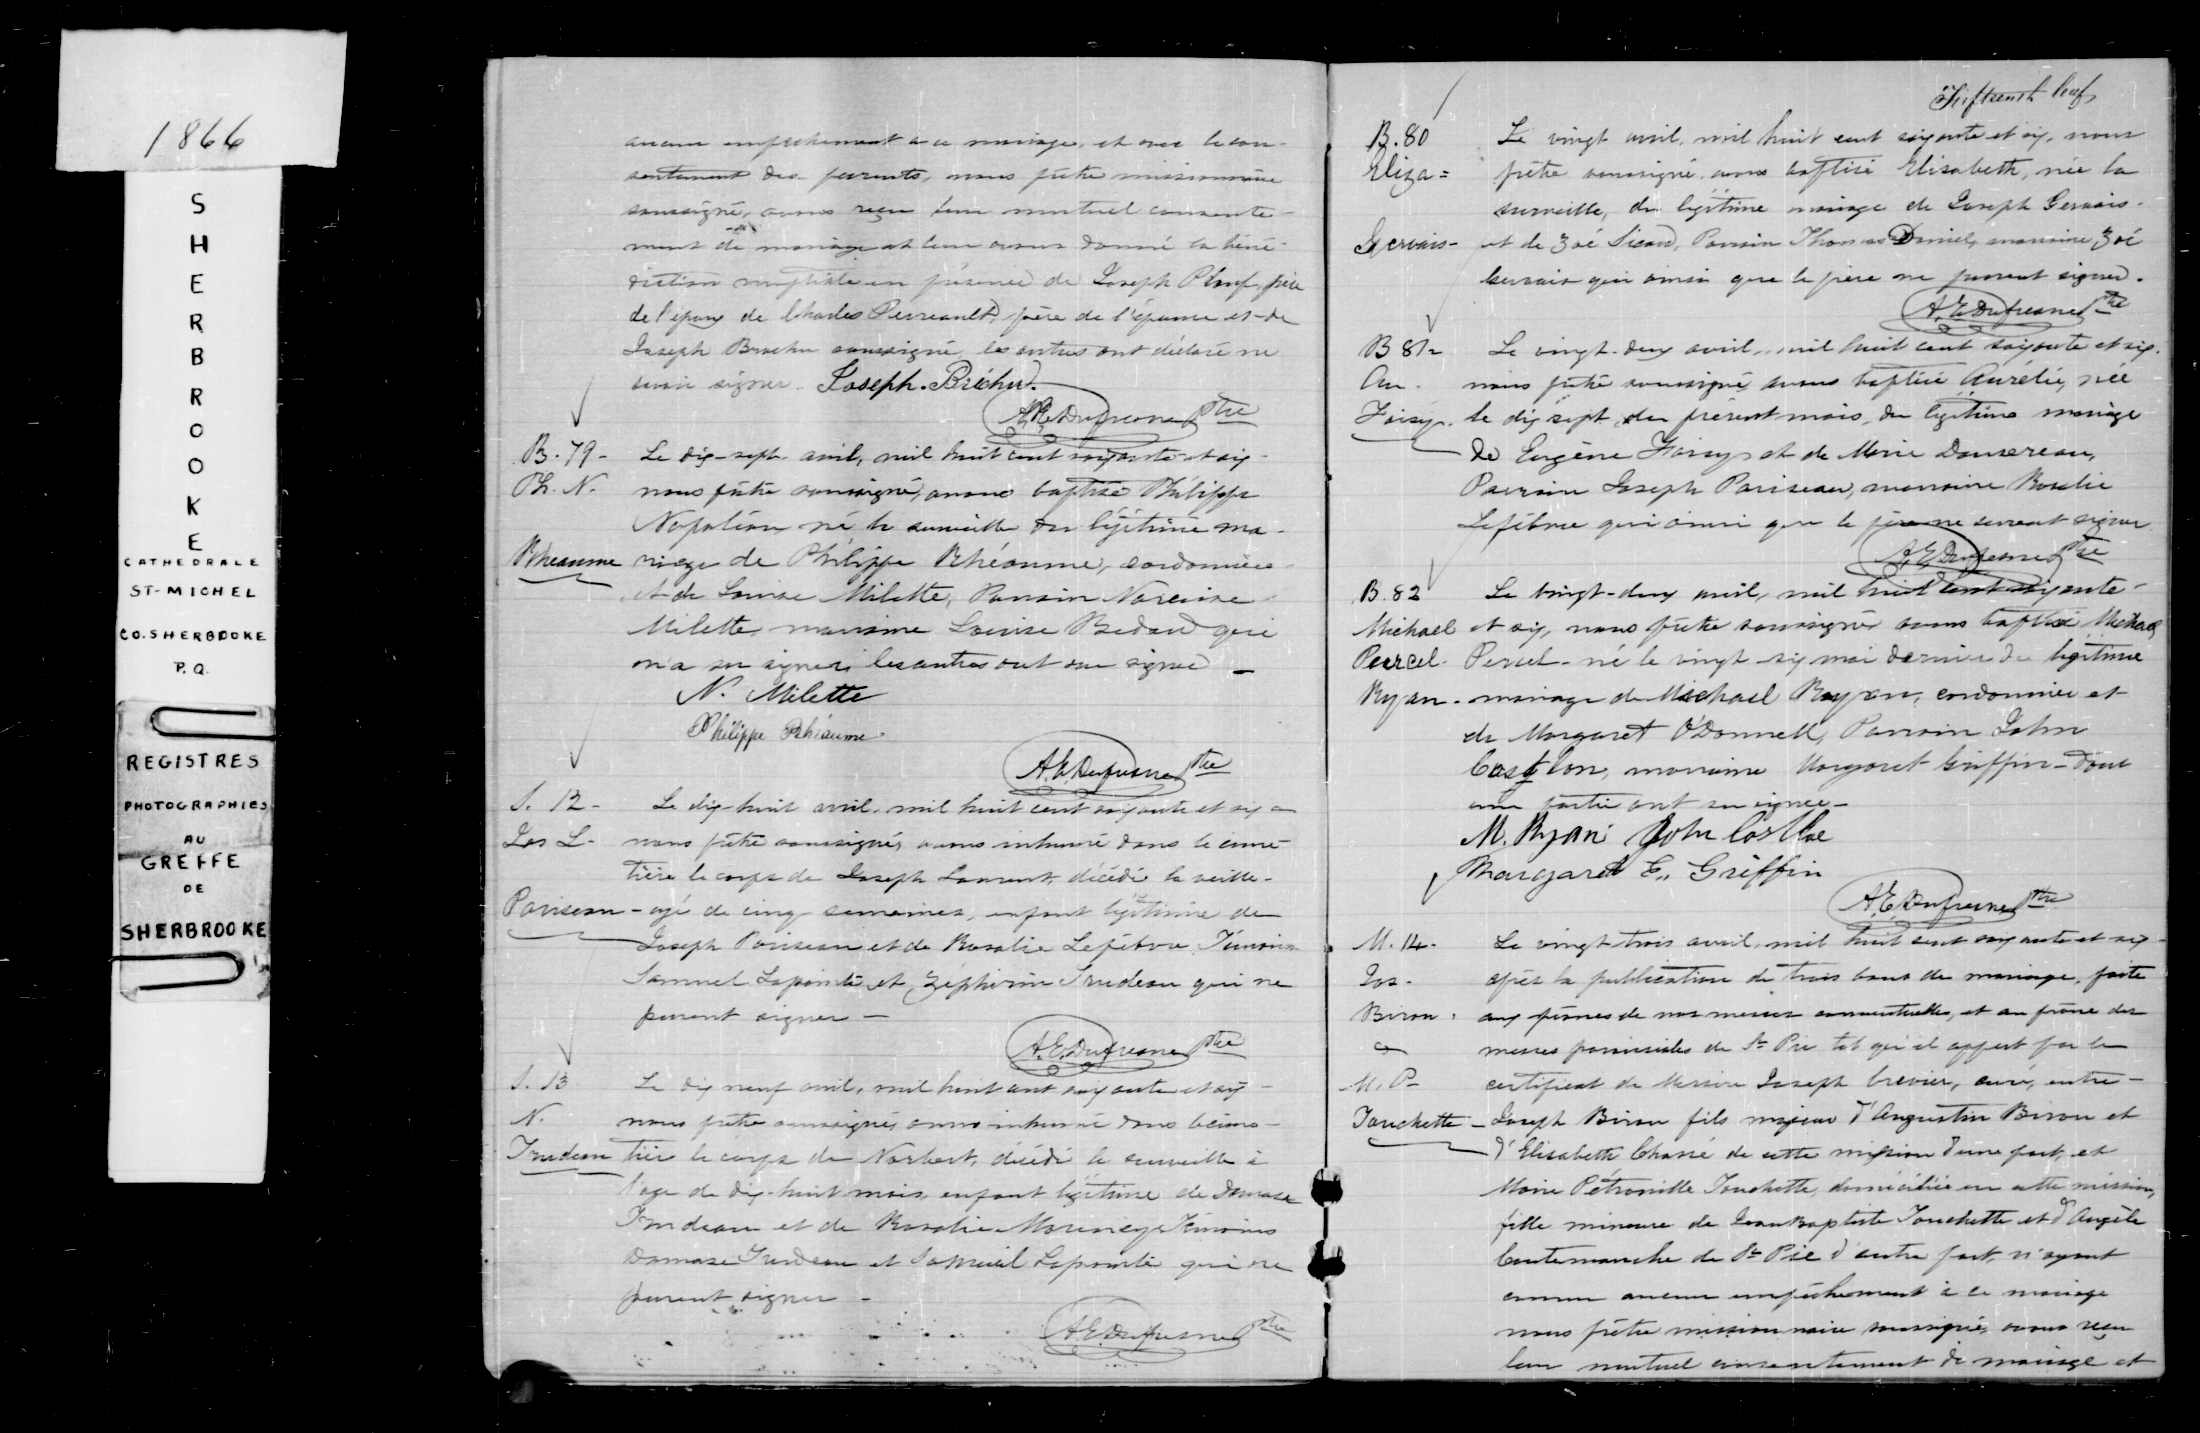 1866
S
H
E
R
B
R
O
O
K
E
CATHEDRALE
ST-MICHEL
CO. SHERBROOKE
P.Q.
REGISTRES
PHOTOGRAPHIES
AU
GREFFE
DE
SHERBROOKE
aucun empêchement à ce mariage, et avec le con-
sentement des parents, nous prêtre missionnaire
soussigné, avons reçu leur mutuel consente-
ment de mariage et leur avons donné la béné-
diction nuptiale en présence de Joseph Plouf, père
de l'époux de Charles Perreault, père de l'épouse et de
Joseph soussigné, les autres ont déclaré ne
savoir signer. Joseph
A.E. Dufresne Ptre
B. 79 - Le dix-sept avril, mil huit cent soixante et six
Ph. N. nous prêtre soussigné, avons baptisé Philippe
Napoléon, né la surveille du légitime ma-
Rheaume riage de Philippe Rhéaume, cordonnier
et de Louise Milette, Parrain Narcisse
Milette, marraine Louise Bedard qui
n'a su signer, les autres ont su signer
N. Milette
Philippe Rhéaume
A.E. Dufresne Ptre
S. 12 - Le dix-huit avril, mil huit cent soixante et six
Jos L. nous prêtre soussigné, avons inhumé dans le cime-
tière le corps de Joseph Laurent, décédé la veille
Pariseau - agé de cinq semaines, enfant légitime de
Joseph Pariseau et de Rosalie Lefebvre, Témoins
Samuel Lapointe et Zéphirin Trudeau qui ne
peuvent signer -
A.E. Dufresne Ptre
S. 13 Le dix neuf avril, mil huit cent soixante et six
N. nous prêtre soussigné, avons inhumé dans le cime-
Trudeau tière le corps de Norbert, décédé la surveille à
l'age de dix-huit mois, enfant légitime de Damase
Trudeau et de Rosalie Témoins
Damase Trudeau et Samuel Lapointe qui ne
peuvent signer -
A.E. Dufresne Ptre
Fifteenth leaf
B. 80 Le vingt avril, mil huit cent soixante et six, nous
Eliza= prêtre soussigné, avons baptisé Elisabeth, née la
surveille, du légitime mariage de Joseph Gervais
Gervais - et de Zoé Sicard, Parrain Thomas Daniel, marraine Zoé
Gervais qui ainsi que le père ne peuvent signer.
A.E. Dufresne Ptre
B 81 - Le vingt-deux avril, mil huit cent soixante et six
Au. nous prêtre soussigné, avons baptisé Aurelie, née
Foisy. le dix sept du présent mois, du légitime mariage
de Eugène Foisy et de Marie Dansereau,
Parrain Joseph Pariseau, marraine Rosalie
Lefebvre qui ainsi que le père ne savent signer
A.E. Dufresne Ptre
B. 82 Le vingt-deux avril, mil huit cent soixante
Michael et six, nous prêtre soussigné avons baptisé Michael
Peercel Percel - né le vingt-six mai dernier du légitime
Ryan. mariage de Michael Rayan, cordonnier et
de Margaret O'Donnell, Parrain John
marraine Margaret Griffin - dont
une partie ont su signer -
M. Ryan John
Margaret E. Griffin
A.E. Dufresne Ptre
M. 14. Le vingt-trois avril, mil huit cent soixante et six
Jos. après la publication de trois bans de mariage, faite
Biron. aux prônes de nos messes conventuelles, et au prône des
& messes paroissiales de St Pie tel qu'il appert par le
M. P. certificat de Messire Joseph Crevier, curé, entre -
Touchette - Joseph Biron fils majeur d'Augustin Biron et
d'Elisabeth de cette mission d'une part, et
Marie Pétronille Touchette, domiciliée en cette mission,
fille mineure de Jean Baptiste Touchette et d'Angèle
Coutemanche de St Pie d'autre part, n'ayant
connu aucun empêchement à ce mariage
nous prêtre missionnaire soussigné, avons reçu
leur mutuel consentement de mariage et